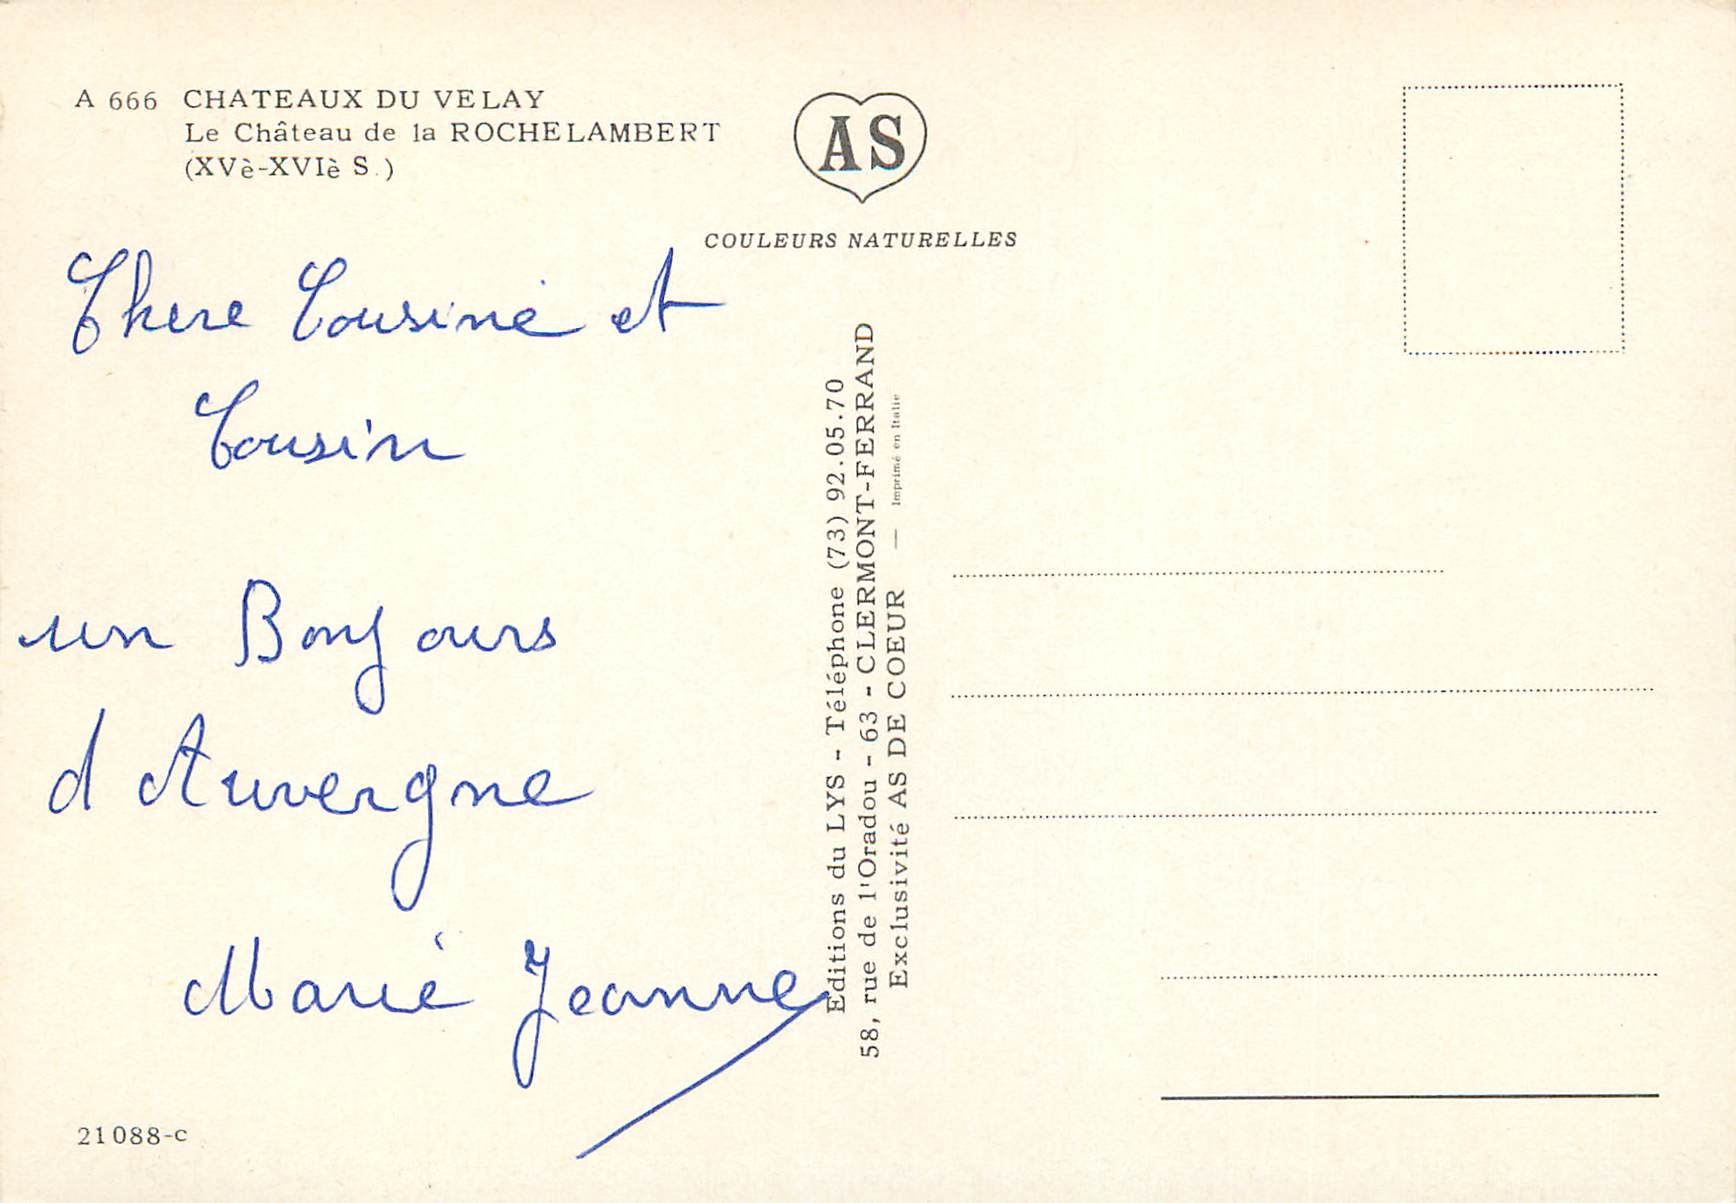 A 666 CHATEAUX DU VELAY
Le Château de la ROCHELAMBERT
(XVè-XVIè S.)
AS
COULEURS NATURELLES
Chere Cousine et
Cousin
un Bonjours
d Auvergne
Marie Jeanne
21088-c
Editions du LYS - Téléphone (73) 92.05.70
58, rue de l'Oradou - 63 - CLERMONT-FERRAND
Exclusivité AS DE COEUR — Imprimé en Italie